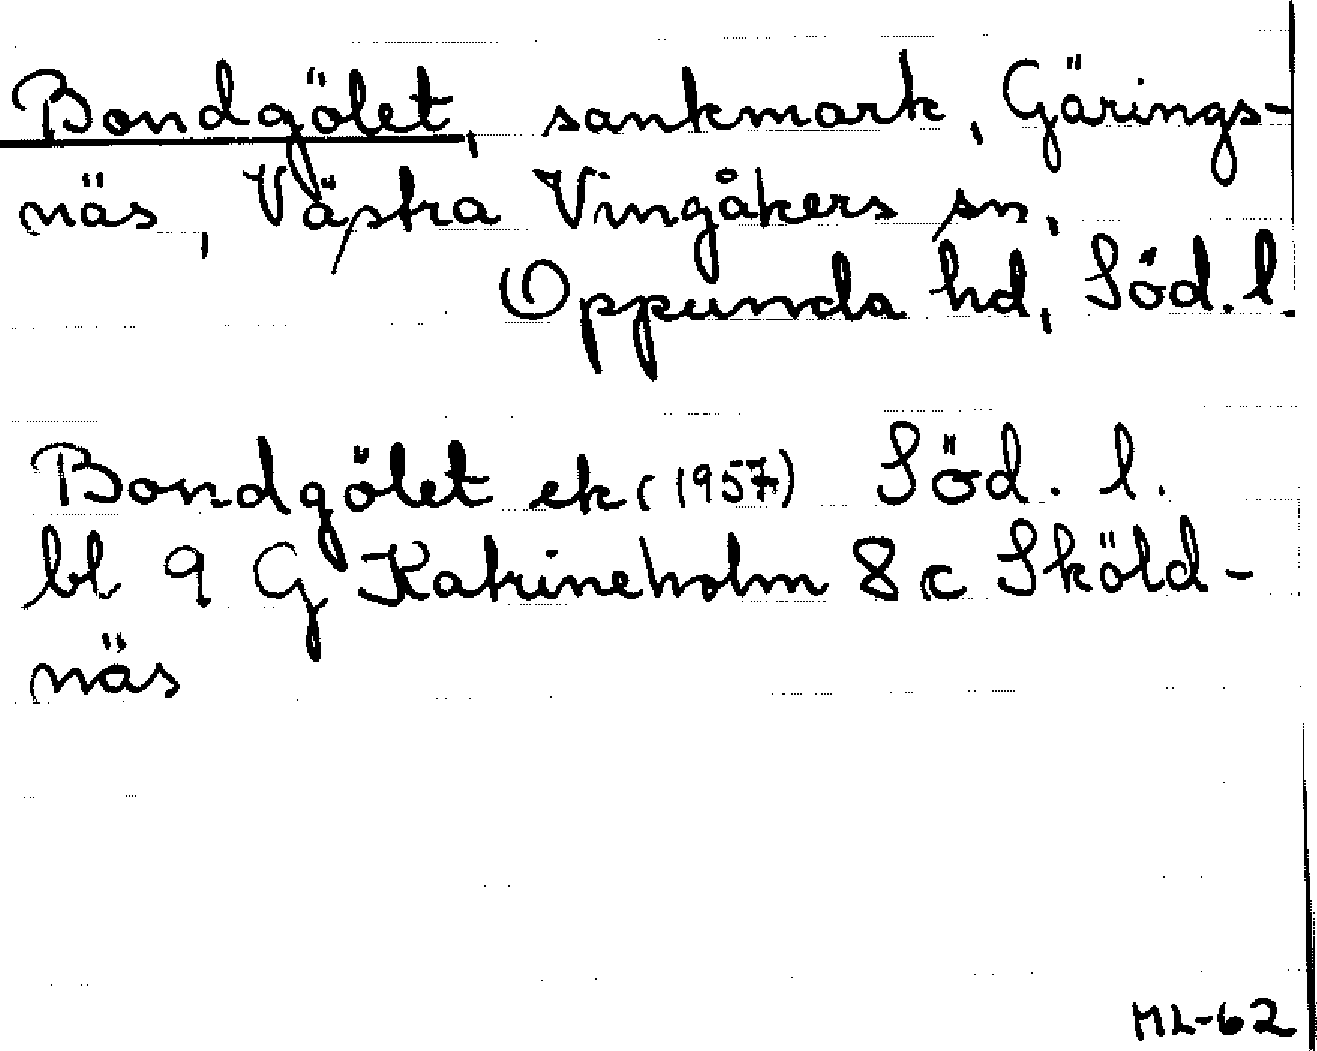 Bondgölet, sankmark, Gärings-
näs, Västra Vingåkers sn,
Oppunda hd, Söd. l.
Bondgölet ek (1957) Söd. l.
bl 9 G Katrineholm 8 c Sköld-
näs
ML-62